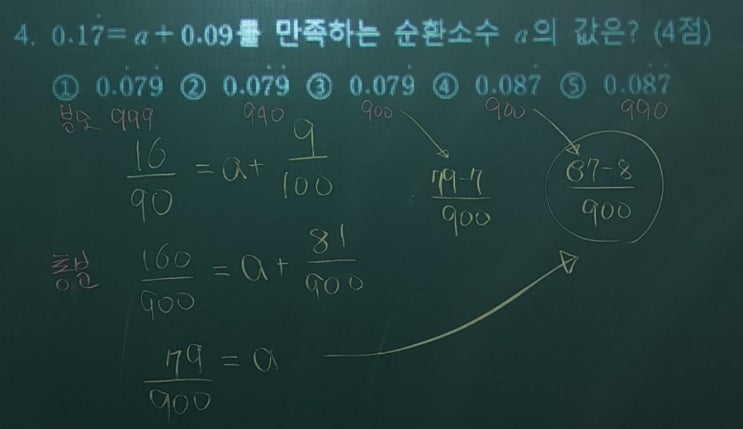 4. 0.17̇ = a + 0.09를 만족하는 순환소수 a의 값은? (4점)
① 0.0̇79̇ ② 0.07̇9̇ ③ 0.079̇ ④ 0.087̇ ⑤ 0.08̇7̇
분모 999 990 900 900 990
16/90 = a + 9/100
79-7/900 87-8/900
통분 160/900 = a + 81/900
79/900 = a